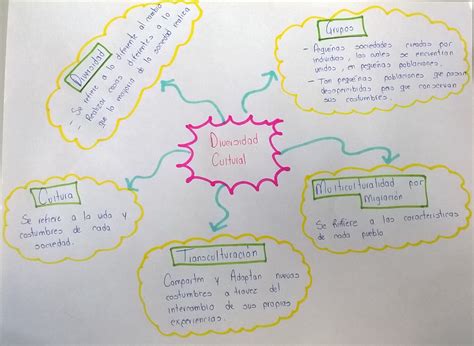 Diversidad
Cultural
Diversidad
- Se refiere a lo diferente al cambio
- Realizar cosas diferentes a lo
que la mayoria de la sociedad realiza
Grupos
- Pequeñas sociedades creadas por
individuos, los antes se encuentran
unidos, en pequeñas poblaciones.
- Tan pequeñas poblaciones que pasan
desapercibidas pero que conservan
sus costumbres.
Cultura
Se refiere a la vida y
costumbres de cada
sociedad.
Transculturación
Comparten y Adoptan nuevas
costumbres a travez del
intercambio de sus propias
experiencias.
Multiculturalidad por
Migración
Se Refiere a las caracteristicas
de cada pueblo